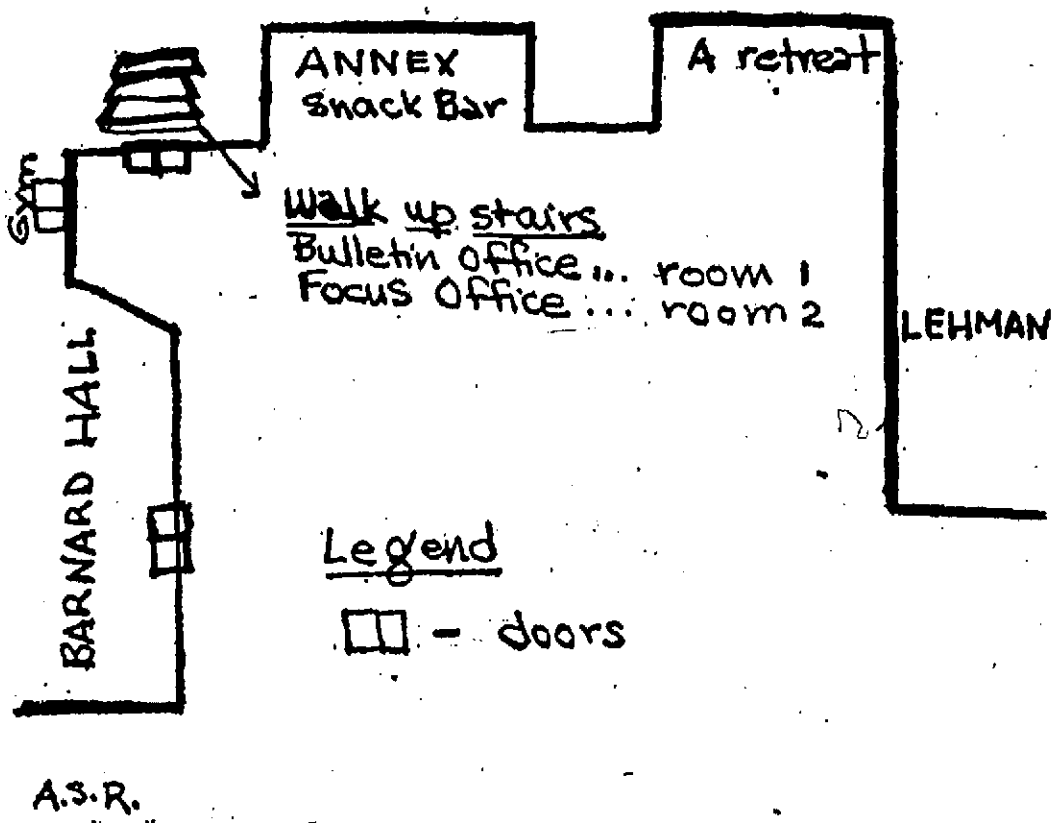 ANNEX
Snack Bar
A retreat
gym
Walk up stairs
Bulletin Office... room 1
Focus Office... room 2
LEHMAN
BARNARD HALL
Legend
- doors
A.S.R.